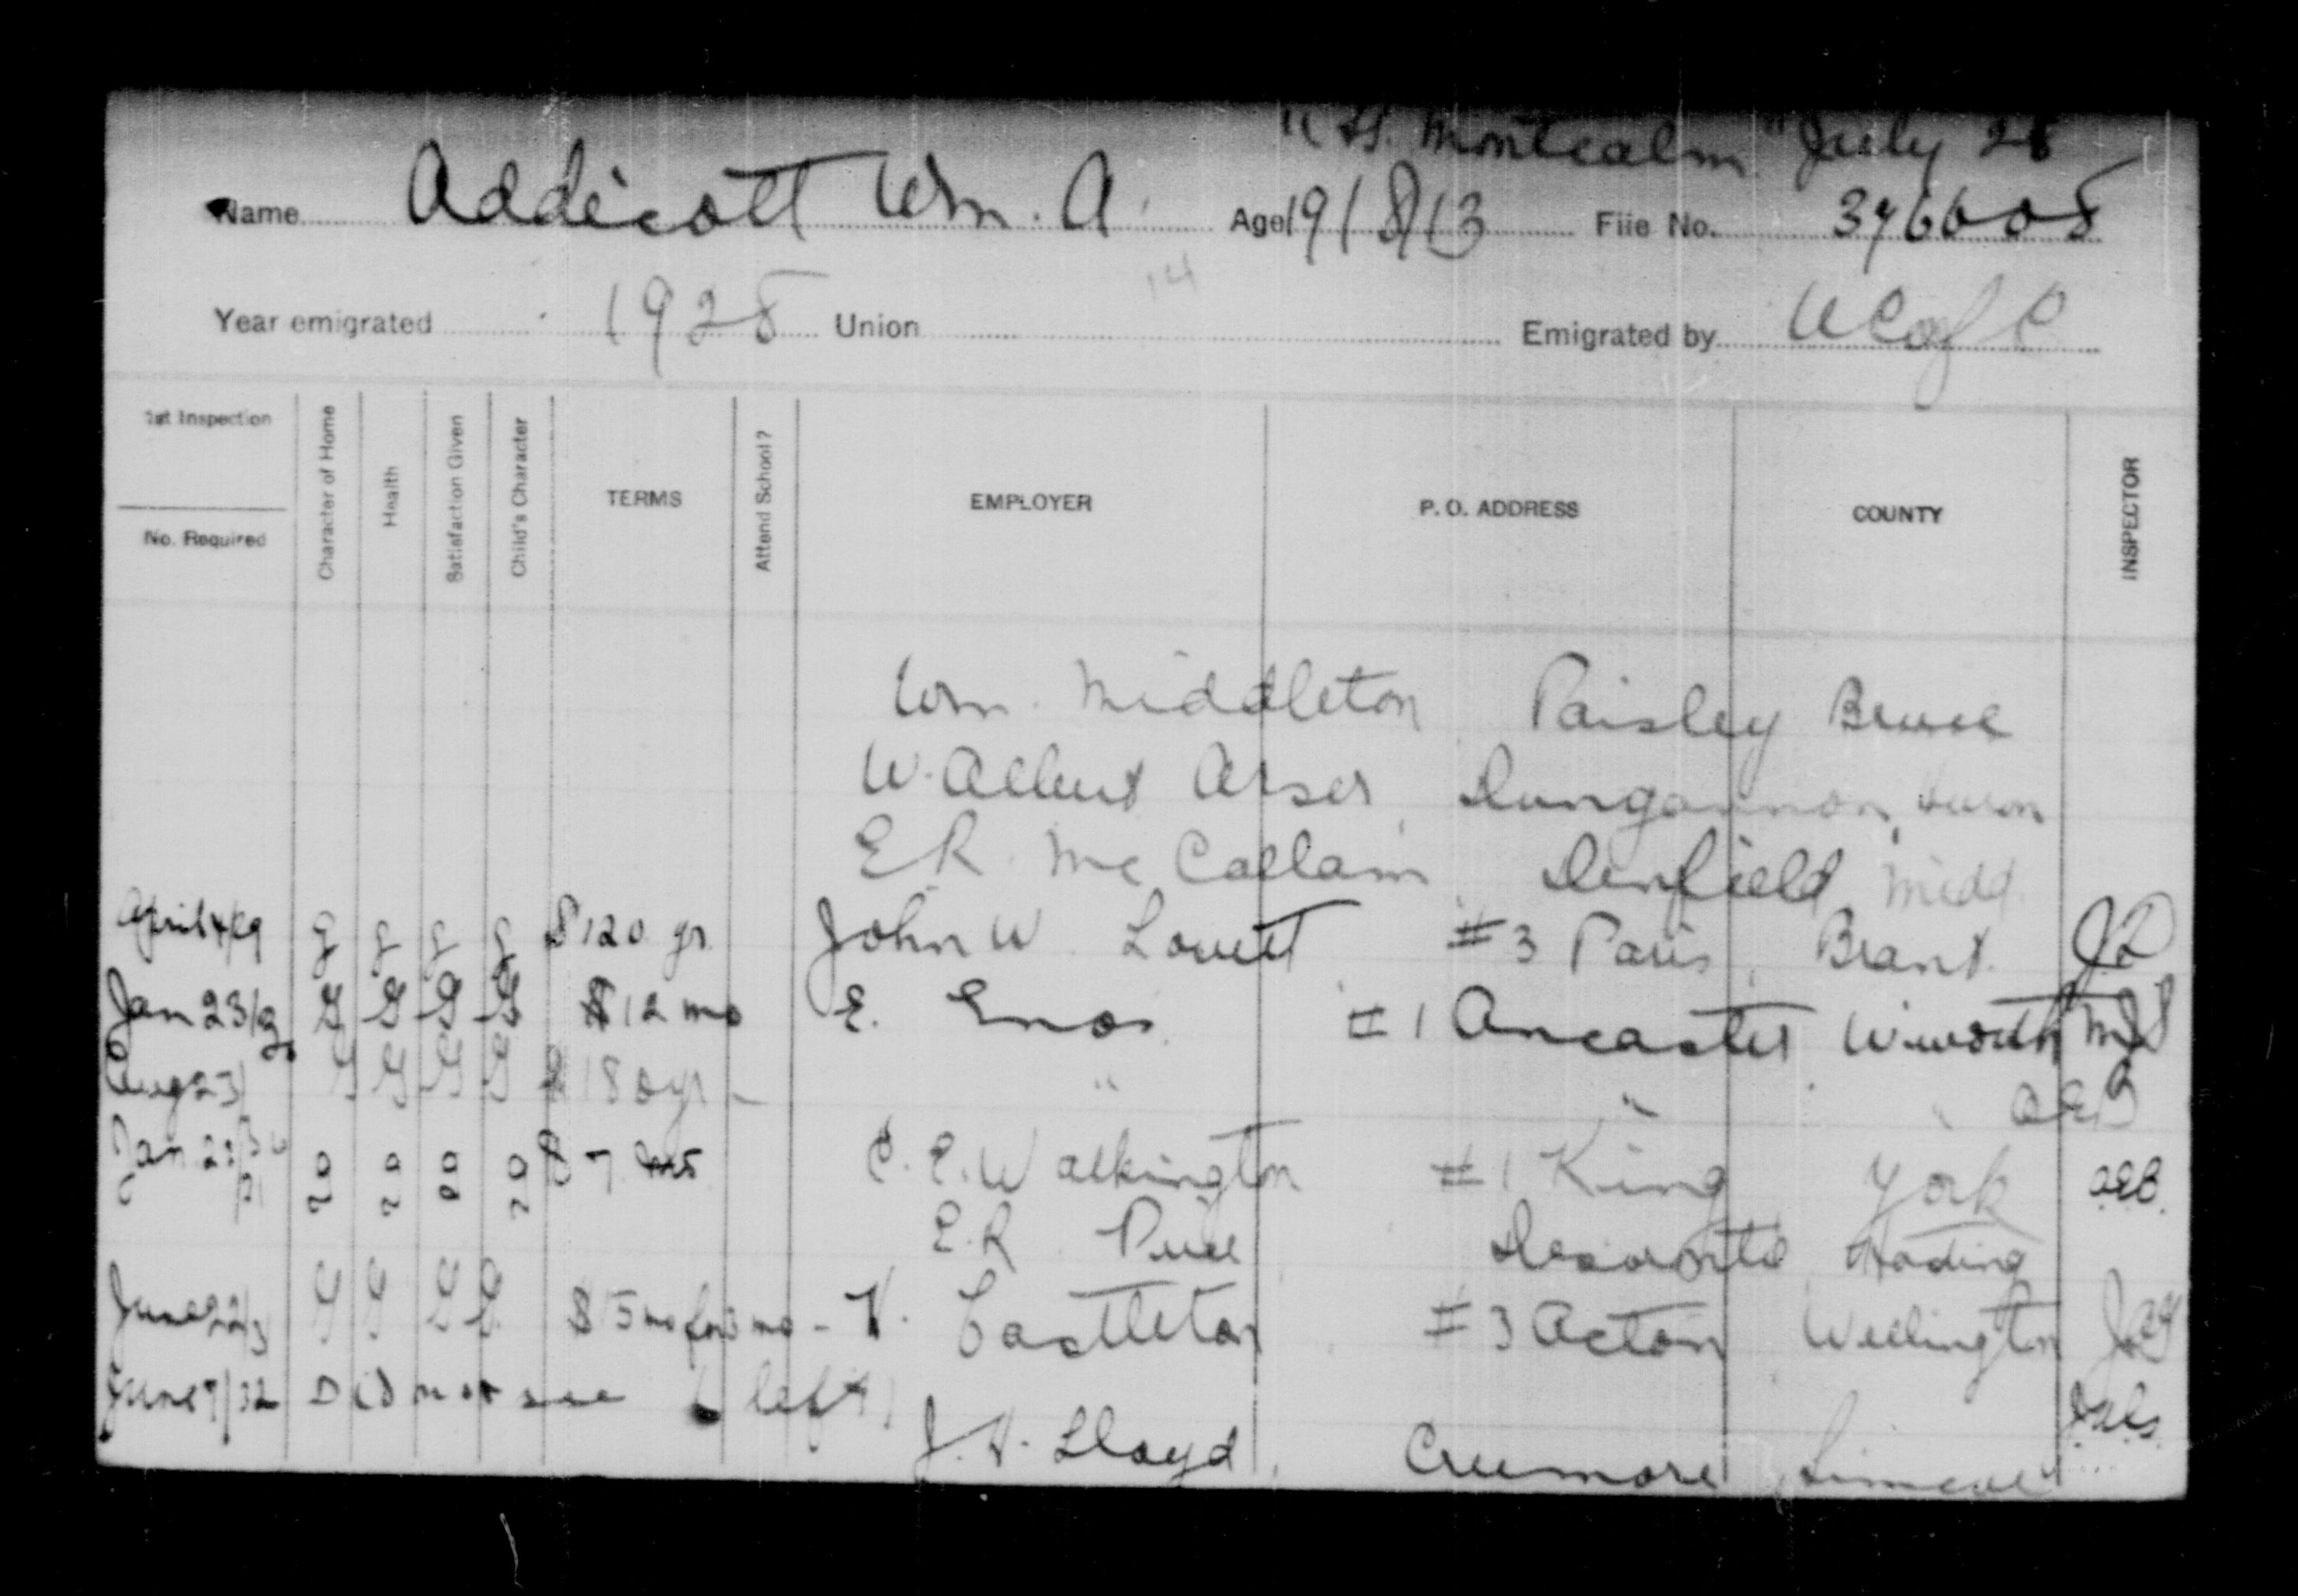 "S.S. Montcalm" July 28
Name Addicott Wm. A. Age 19/8/13 File No. 376608
14
Year emigrated 1928 Union Emigrated by U C of C
1st Inspection
No. Required
Character of Home
Health
Satisfaction Given
Child's Character
TERMS
Attend School?
EMPLOYER
P. O. ADDRESS
COUNTY
INSPECTOR
Wm. Middleton Paisley Bruce
W. Albert Dungannon, Huron
E R. McCallam Denfield, Midd.
April 4/29 g g g g $120 yr John W. Lovett #3 Paris, Brant.
Jan 23/ G G G G $12 mo E. Enos #1 Ancaster W.worth
Aug 23/ G G G G $180 yr - " " " AEB
Jan 7 C. E. Walkington #1 King York AEB.
E. R. Price
June 22/3 G G G G $15 mo for mo - V. Castleton #3 Acton Wellington
June 7/32 Did not see (left)
J. H. Lloyd, Creemore, Simcoe